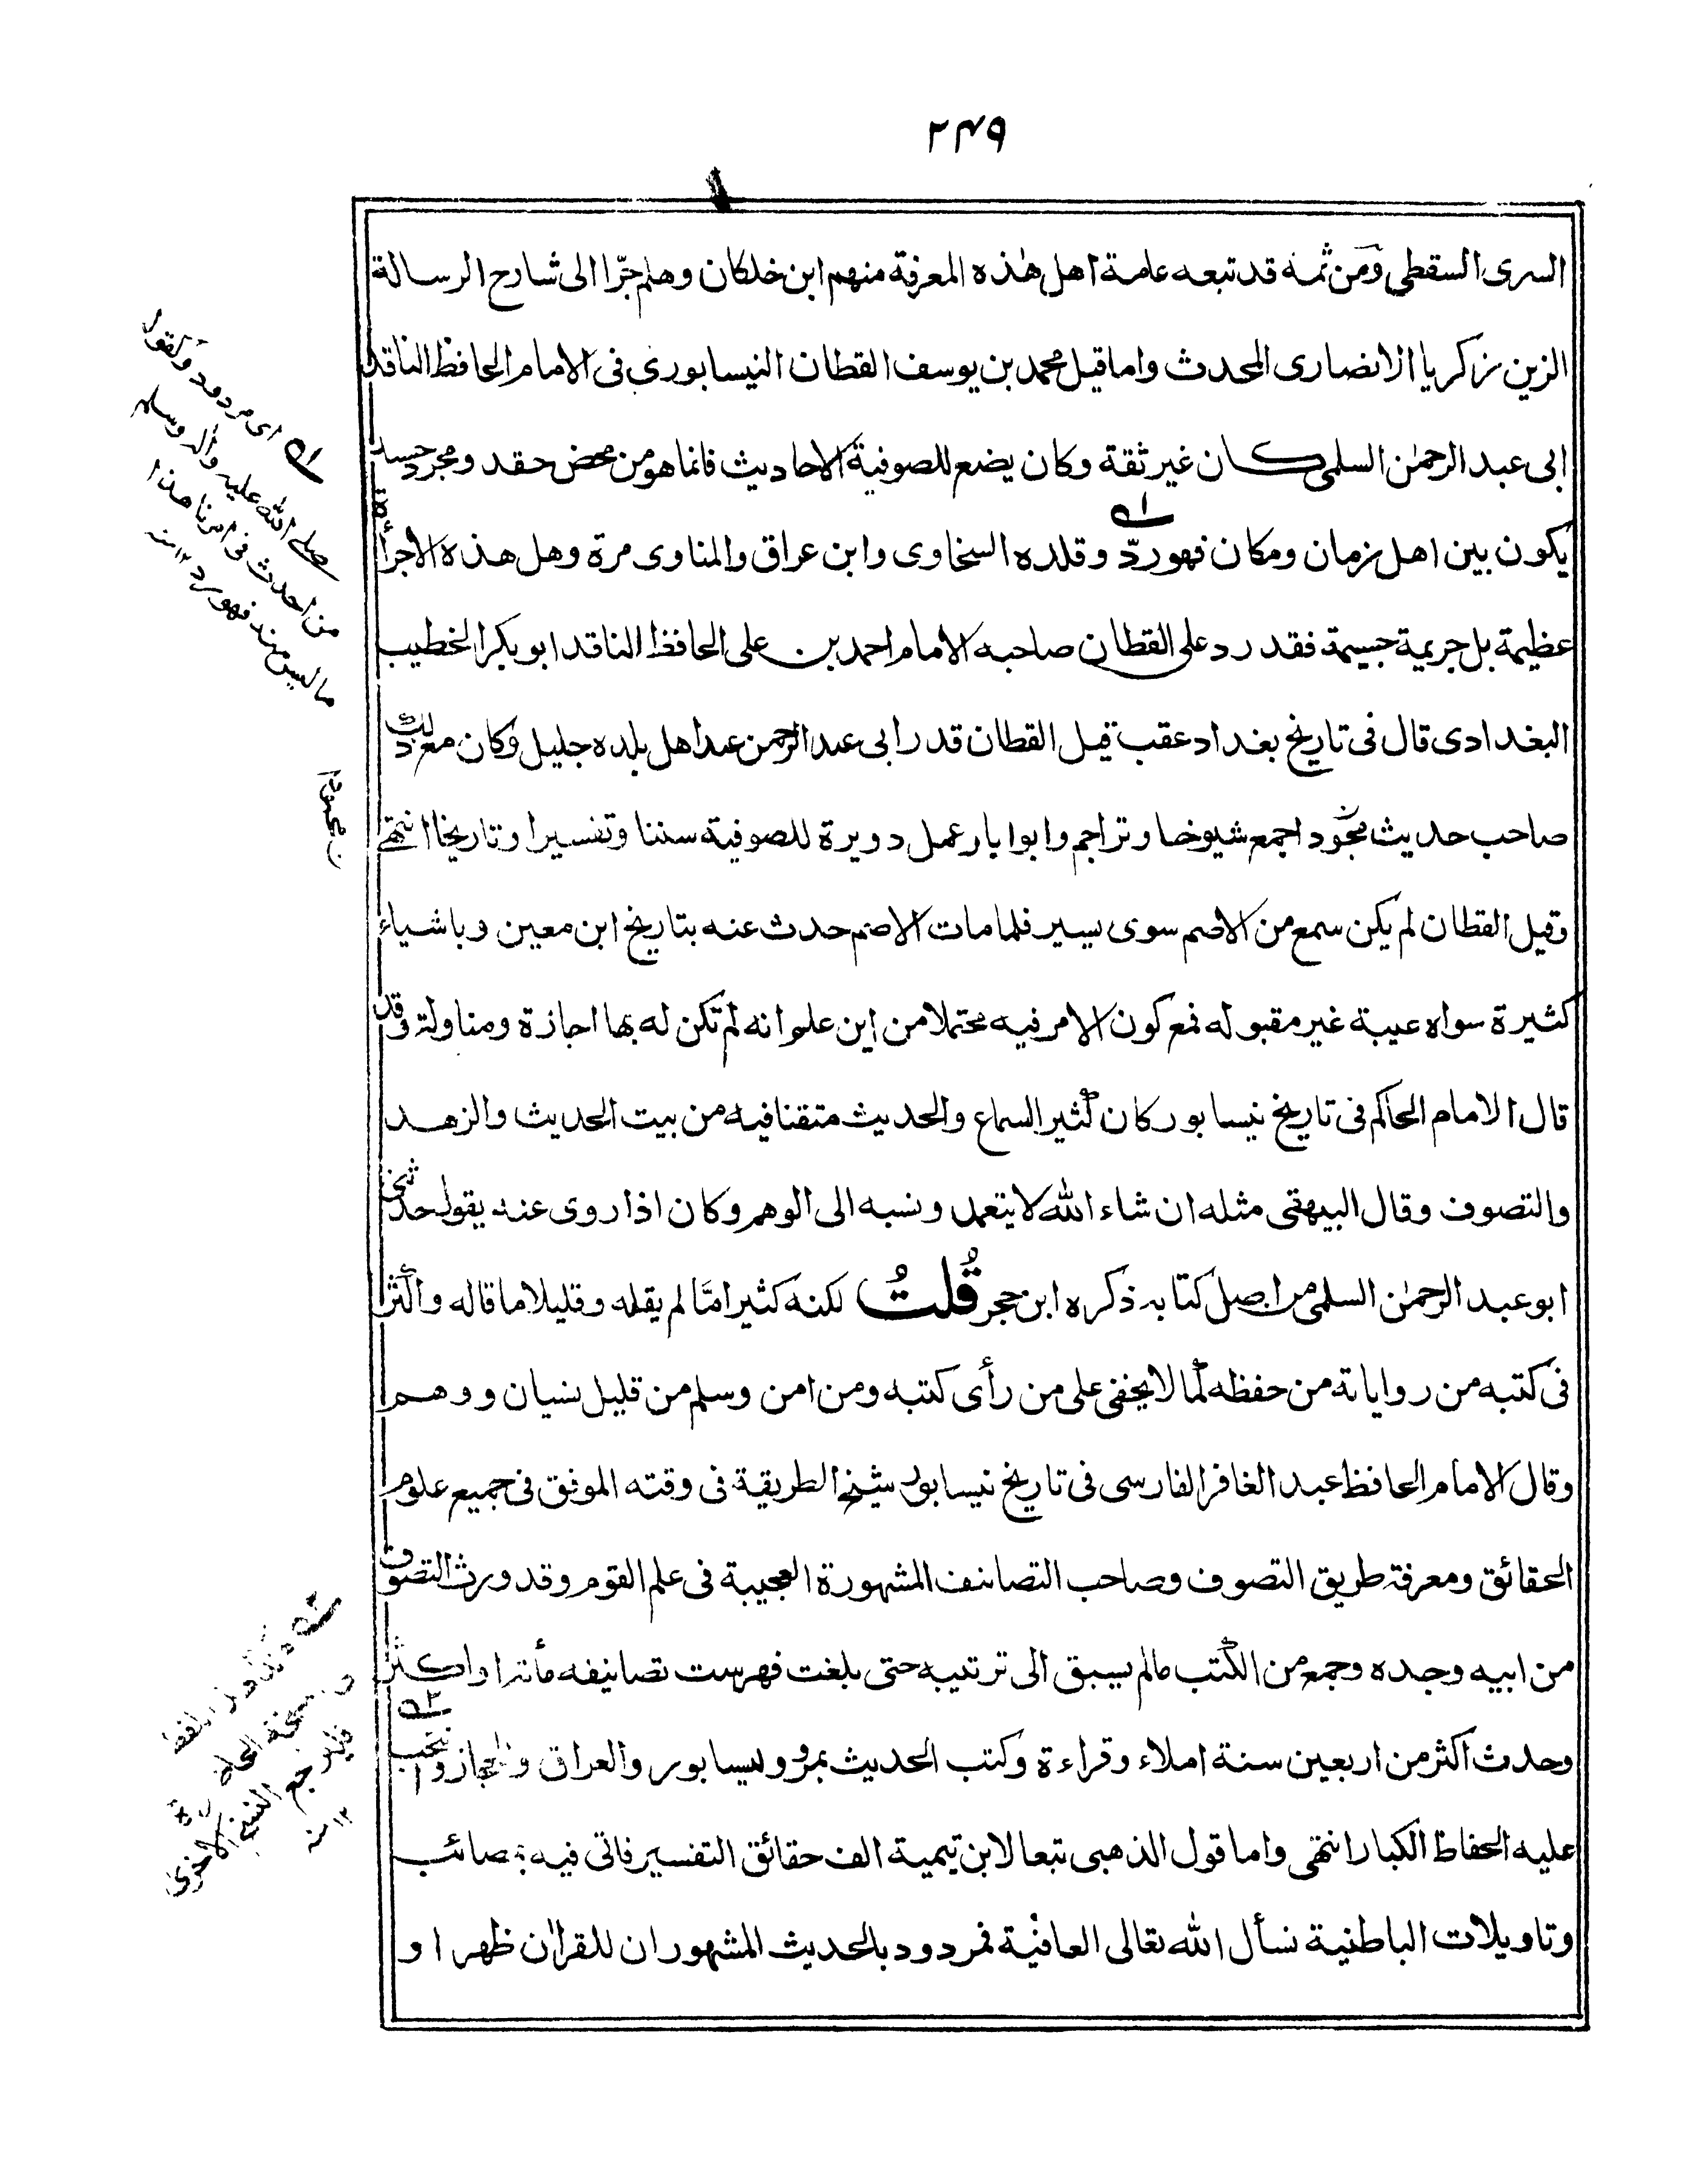 ۲۴۹
السرى السقطى ومن ثمه قد تبعه عامة اهل هٰذه المعرفة منهم ابن خلكان وهلم جرّا الى شارح الرسالة
الزين زكريا الانصارى المحدث واما قيل محمد بن يوسف القطان النيسابورى فى الامام الحافظ الناقد
ابى عبد الرحمٰن السلمى كان غير ثقة وكان يضع للصوفية الاحاديث فانما هو من محض حقد ومجرد حسد
يكون بين اهل زمان ومكان فهو ردّ وقلده السخاوى وابن عراق والمناوى مرة وهل هذه الاجرأة
عظيمة بل جريمة جسيمة فقد رد على القطان صاحبه الامام احمد بن على الحافظ الناقد ابو بكر الخطيب
البغدادى قال فى تاريخ بغداد عقب قيل القطان قدر ابى عبد الرحمن عند اهل بلده جليل وكان مع ذلك
صاحب حديث مجودا جمع شيوخا وتراجم وابوابا وعمل دويرة للصوفية سننا وتفسيرا وتاريخا انتهى
وقيل القطان لم يكن سمع من الاصم سوى يسير فلما مات الاصم حدث عنه بتاريخ ابن معين وباشياء
كثيرة سواه عيبة غير مقبوله فمع كون الامر فيه محتملا من اين علم انه لم تكن له بها اجازة ومناولة وقد
قال الامام الحاكم فى تاريخ نيسابور كان كثير السماع والحديث متقنا فيه من بيت الحديث والزهد
والتصوف وقال البيهقى مثله ان شاء الله لا يتعمد ونسبه الى الوهم وكان اذا روى عنه يقول حدثنى
ابو عبد الرحمٰن السلمى من اصل كتابه ذكره ابن حجر قُلتُ لكنه كثيرا امّا لم يقله وقليلا ما قاله واكثر
فى كتبه من رواياته من حفظه كما لا يخفى على من رأى كتبه ومن امن وسلم من قليل نسيان ووهم
وقال الامام الحافظ عبد الغافر الفارسى فى تاريخ نيسابور شيخ الطريقة فى وقته الموفق فى جميع علوم
الحقائق ومعرفة طريق التصوف وصاحب التصانيف المشهورة العجيبة فى علم القوم وقد ورث التصوف
من ابيه وجده وجمع من الكتب مالم يسبق الى ترتيبه حتى بلغت فهرست تصانيفه مأته او اكثر
وحدث اكثر من اربعين سنة املاء وقراءة وكتب الحديث بمرو ونيسابور والعراق والحجاز وانتخب
عليه الحفاظ الكبار انتهى واما قول الذهبى تبعا لابن تيمية الف حقائق التفسير فاتى فيه بمصائب
وتاويلات الباطنية نسأل الله تعالى العافية فمردود بالحديث المشهور ان للقراٰن ظهرا و
اى مردود ولقوله
صلے الله عليه واله وسلم
من احدث فى امرنا هذا
ما ليس منه فهو رد ۱۲ منه